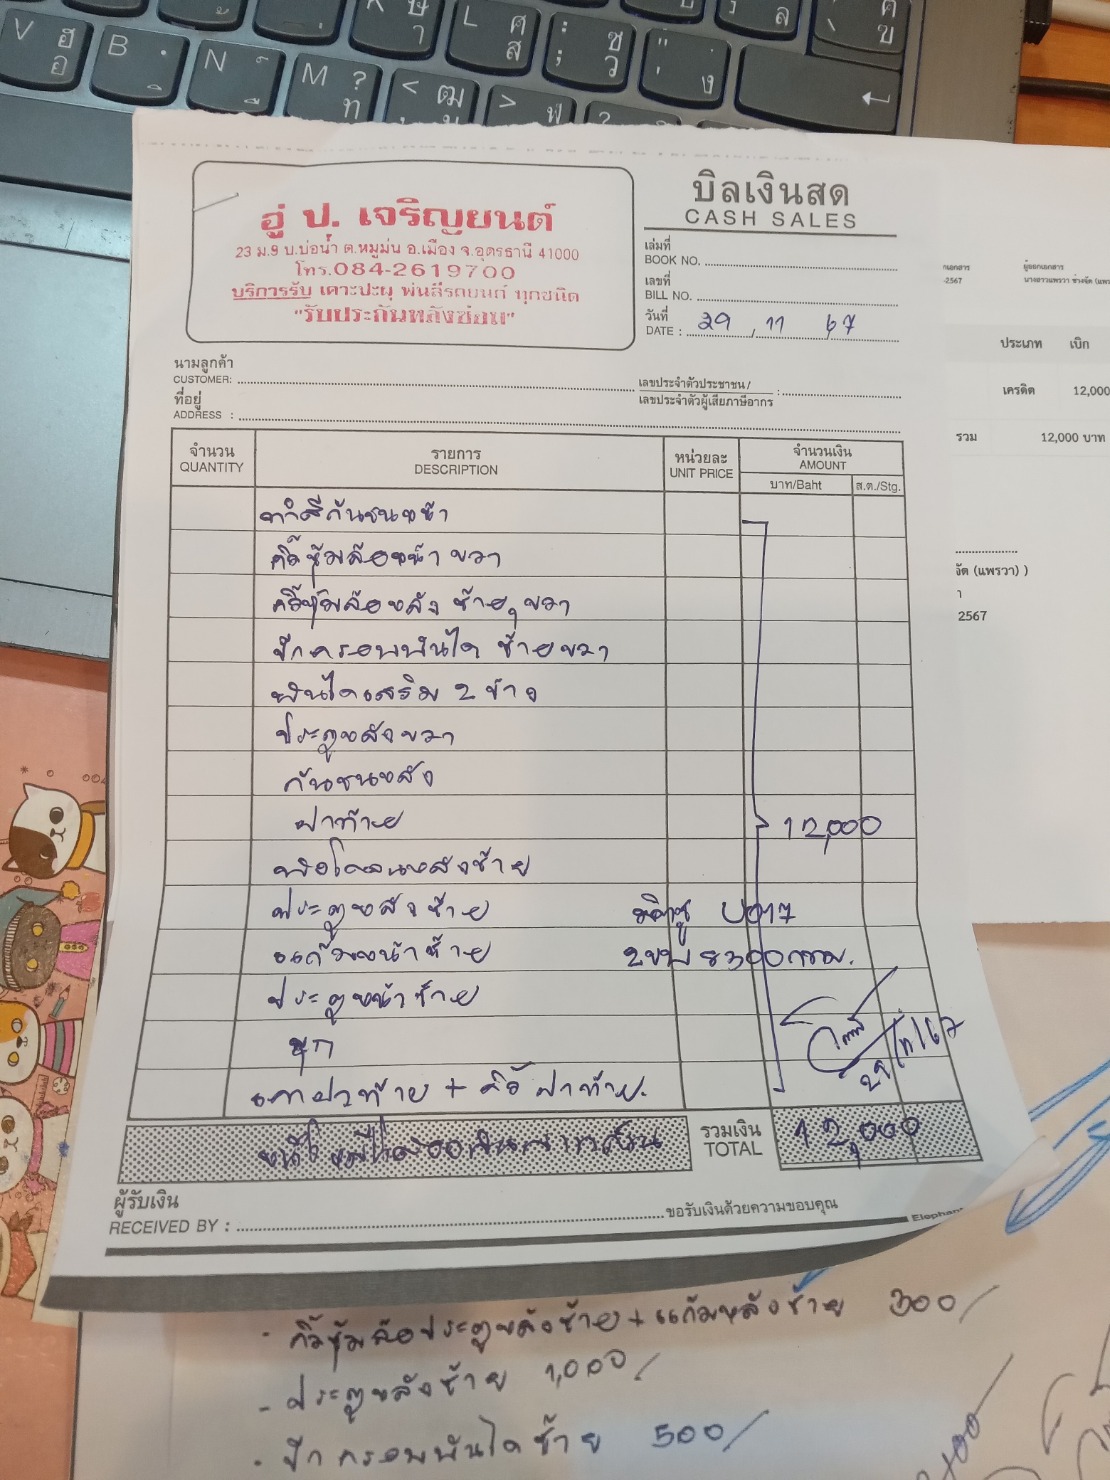 อู่ ป. เจริญยนต์
23 ม.9 บ.บ่อน้ำ ต.หมูม่น อ.เมือง จ.อุดรธานี 41000
โทร.084-2619700
บริการรับ เคาะปะผุ พ่นสีรถยนต์ ทุกชนิด
"รับประกันหลังซ่อม"
บิลเงินสด
CASH SALES
เล่มที่
BOOK NO.
เลขที่
BILL NO.
วันที่
DATE : 29 / 11 / 67
นามลูกค้า
CUSTOMER:
เลขประจำตัวประชาชน /
เลขประจำตัวผู้เสียภาษีอากร :
ที่อยู่
ADDRESS :
จำนวน รายการ หน่วยละ จำนวนเงิน
QUANTITY DESCRIPTION UNIT PRICE AMOUNT
บาท/Baht ส.ต./Stg.
ทำสีกันชนหน้า
คิ้วซุ้มล้อหน้า ขวา
คิ้วซุ้มล้อหลัง ซ้าย, ขวา
ปีกครอบบันได ซ้ายขวา
บันไดเสริม 2 ข้าง
ประตูหลังขวา
กันชนหลัง
ฝาท้าย 12,000
หลังซ้าย
ประตูหลังซ้าย
แก้มหน้าซ้าย
ประตูหน้าซ้าย
ฝาท้าย.
รวมเงิน
TOTAL 12,000
ผู้รับเงิน
RECEIVED BY :
ขอรับเงินด้วยความขอบคุณ
Elephant
29/11/67
- คิ้วซุ้มล้อประตูหลังซ้าย + แก้มหลังซ้าย 300/
- ประตูหลังซ้าย 1,000/
- ปีกครอบบันไดซ้าย 500/
ผู้ออกเอกสาร
-2567
ประเภท เบิก
เครดิต 12,000
รวม 12,000 บาท
จัด (แพรวา) )
2567